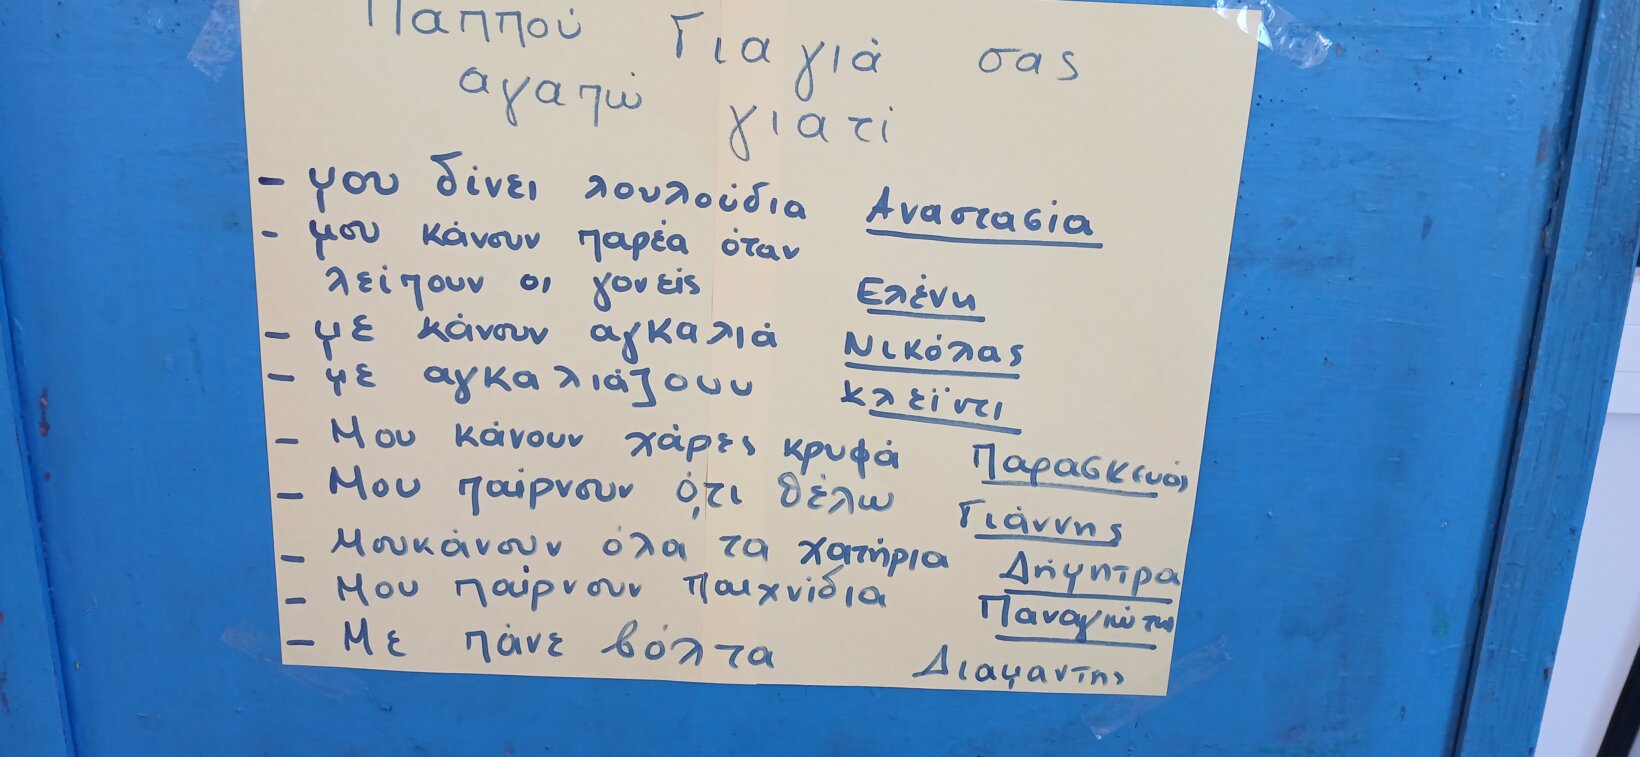 Παππού Γιαγιά σας
αγαπώ γιατί
- μου δίνει λουλούδια Αναστασία
- μου κάνουν παρέα όταν
λείπουν οι γονείς Ελένη
- με κάνουν αγκαλιά Νικόλας
- με αγκαλιάζουν Κλεϊντι
- Μου κάνουν χάρες κρυφά Παρασκευάς
- Μου παίρνουν ό,τι θέλω Γιάννης
- Μουκάνουν όλα τα χατήρια Δήμητρα
- Μου παίρνουν παιχνίδια Παναγιώτης
- Με πάνε βόλτα Διαμαντης